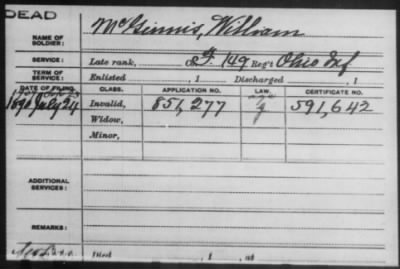 DEAD
NAME OF SOLDIER: McGinnis, William
SERVICE: Late rank, F. 149 Reg't Ohio Inf
TERM OF SERVICE: Enlisted , 1 Discharged , 1
DATE OF FILING. CLASS. APPLICATION NO. LAW. CERTIFICATE NO.
1890 July 24 Invalid, 851,277 591,642
Widow,
Minor,
ADDITIONAL SERVICES:
REMARKS:
Died , 1 , at